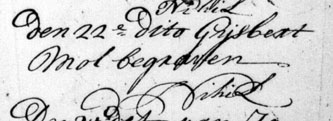 Nihil
Den 22e. dito Gijsbert
Mol begraven
Nihil